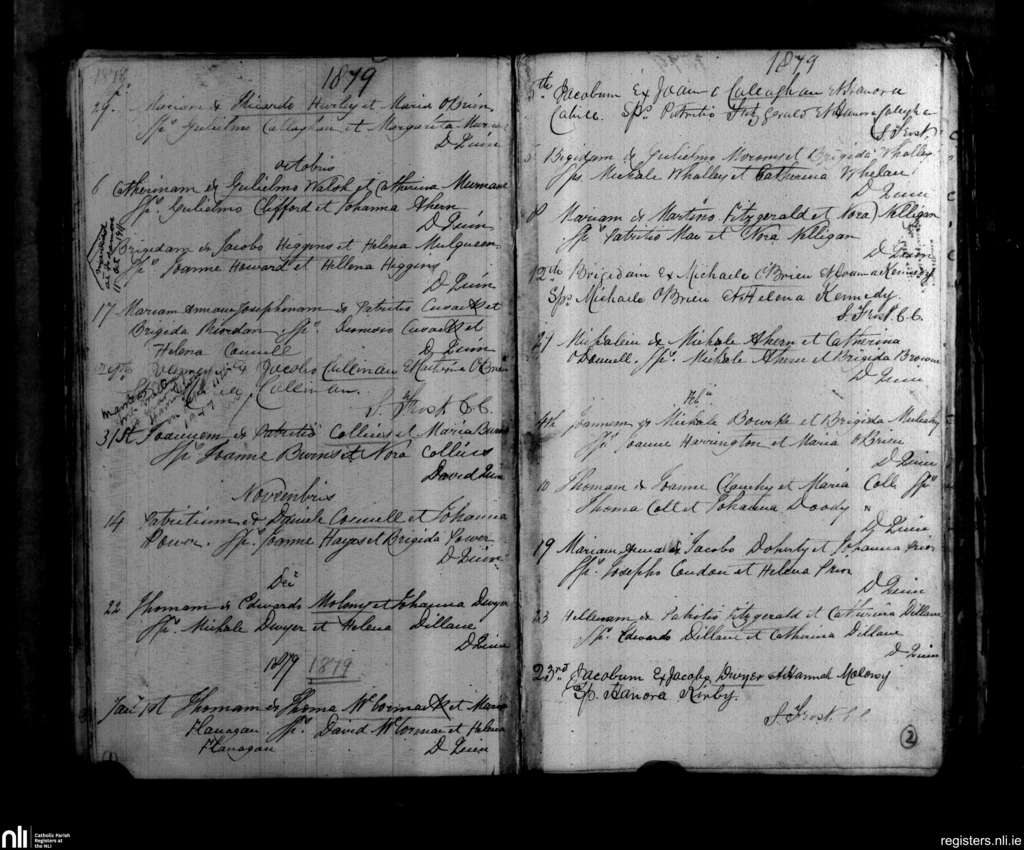 1878
1879
29. Mariam ex Ricardo Hurley et Maria OBrien
Sps Gulielmo Callaghan et Margarita
D Quin
Octobris
6 Catherinam ex Gulielmo Walsh et Catherina Murnane
Sps Gulielmo Clifford et Johanna Ahern
D Quin
Brigidam ex Jacobo Higgins et Helena Mulqueen
Sps Joanne Howard et Hellena Higgins
D Quin
married
17 Mariam Annam Josephinam ex Patritio Cusack et
Brigida Riordan. Sps Dionisio Cusack et
Helena Connell
D Quin
29th ex Jacobo Cullinan et OBrien
Cullinan.
S. Frost C.C.
31st Joannem ex Patritio Collins et Maria Burns
Sps Joanne Burns et Nora Collins
David Quin
Novembris
14 Patritium ex Daniele Connell et Johanna
Power. Sps Joanne Hayes et Brigida Power
D Quin
Dec
22 Thomam ex Edwardo Molony et Johanna Dwyer
Sps Michale Dwyer et Helena Dillane
D Quin
1879 1879
Jan 1st Thomam ex Thoma McCormack et Maria
Flanagan Sps David McCormac et Helena
Flanagan D Quin
1879
5th Jacobum Ex Joanne Caleaghan et Hanora
Cahill. Sps Patritio Fitzgerald et Hanora
S Frost
5 Brigidam ex Gulielmo et Brigida Whalley
Sps Michale Whalley et Catherina Whelan
D Quin
8 Mariam ex Martino Fitzgerald et Nora Nelligan
Sps Patritio Mac et Nora Nelligan
D Quin
12th Brigidam Ex Michaele OBrien et Kennedy
Sps Michaele OBrien et Helena Kennedy
S. Frost C.C.
21 ex Michale Ahern et Catherina
ODonnell. Sps Michale Ahern et Brigida Browne
D Quin
Feb
4th Joannem ex Michale Bourke et Brigida
Sps Joanne Harrington et Maria OBrien
D Quin
10 Thomam ex Joanne Clanchy et Maria Coll Sps
Thoma Coll et Johanna Doody
D Quin
19 Mariam Annam ex Jacobo Doherty et Johanna Prior
Sps Josepho Condon et Helena Prior
D Quin
23 Hellenam ex Patritio Fitzgerald et Catherina Dillane
Sps Edwardo Dillane et Catherina Dillane
D Quin
23rd Jacobum Ex Jacobo Dwyer et Hannah Molony
Sp. Hanora Kirby.
S Frost CC
2
nli
Catholic Parish
Registers at
the NLI
registers.nli.ie